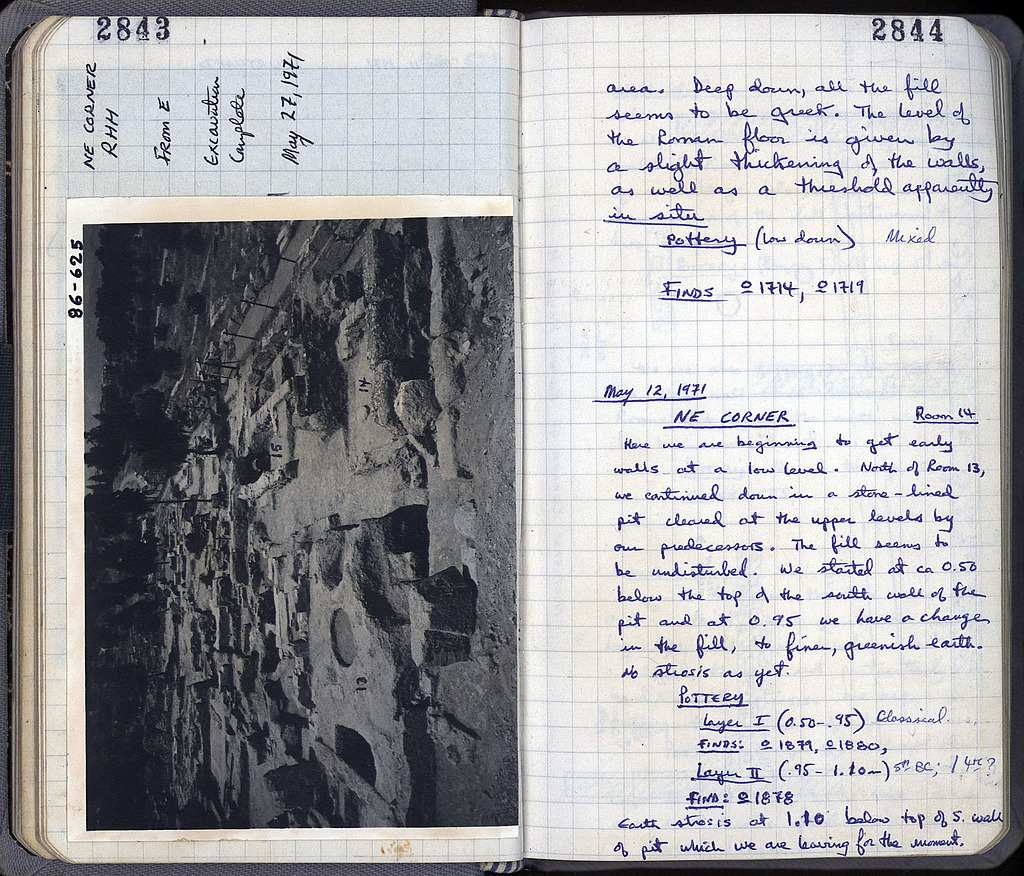 2843
NE CORNER
RHH
FROM E
Excavation
Complete
May 27, 1971
86-625
14
15
13
2844
area. Deep down, all the fill
seems to be Greek. The level of
the Roman floor is given by
a slight thickening of the walls,
as well as a threshold apparently
in situ
Pottery (low down) Mixed
FINDS 1714, 1719
May 12, 1971
NE CORNER Room 14
Here we are beginning to get early
walls at a low level. North of Room 13,
we continued down in a stone-lined
pit cleared at the upper levels by
our predecessors. The fill seems to
be undisturbed. We started at ca 0.50
below the top of the south wall of the
pit and at 0.95 we have a change
in the fill, to finer, greenish earth.
No strosis as yet.
POTTERY
Layer I (0.50-.95) Classical.
FINDS: 1879, 1880,
Layer II (.95-1.10m) 5th BC; 4th?
FIND: 1878
Earth strosis at 1.10 below top of S. wall
of pit which we are leaving for the moment.